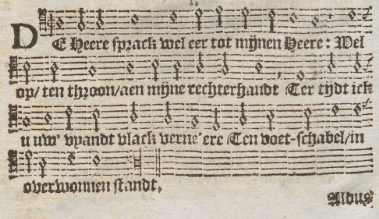 1.
DE Heere sprack wel eer tot mijnen Heere: Wel
op/ ten throon/aen mijne rechterhandt Ter tijdt ick
u uw' vyandt vlack verne'ere Ten voet-schabel/in
overwonnen standt,
Aldus